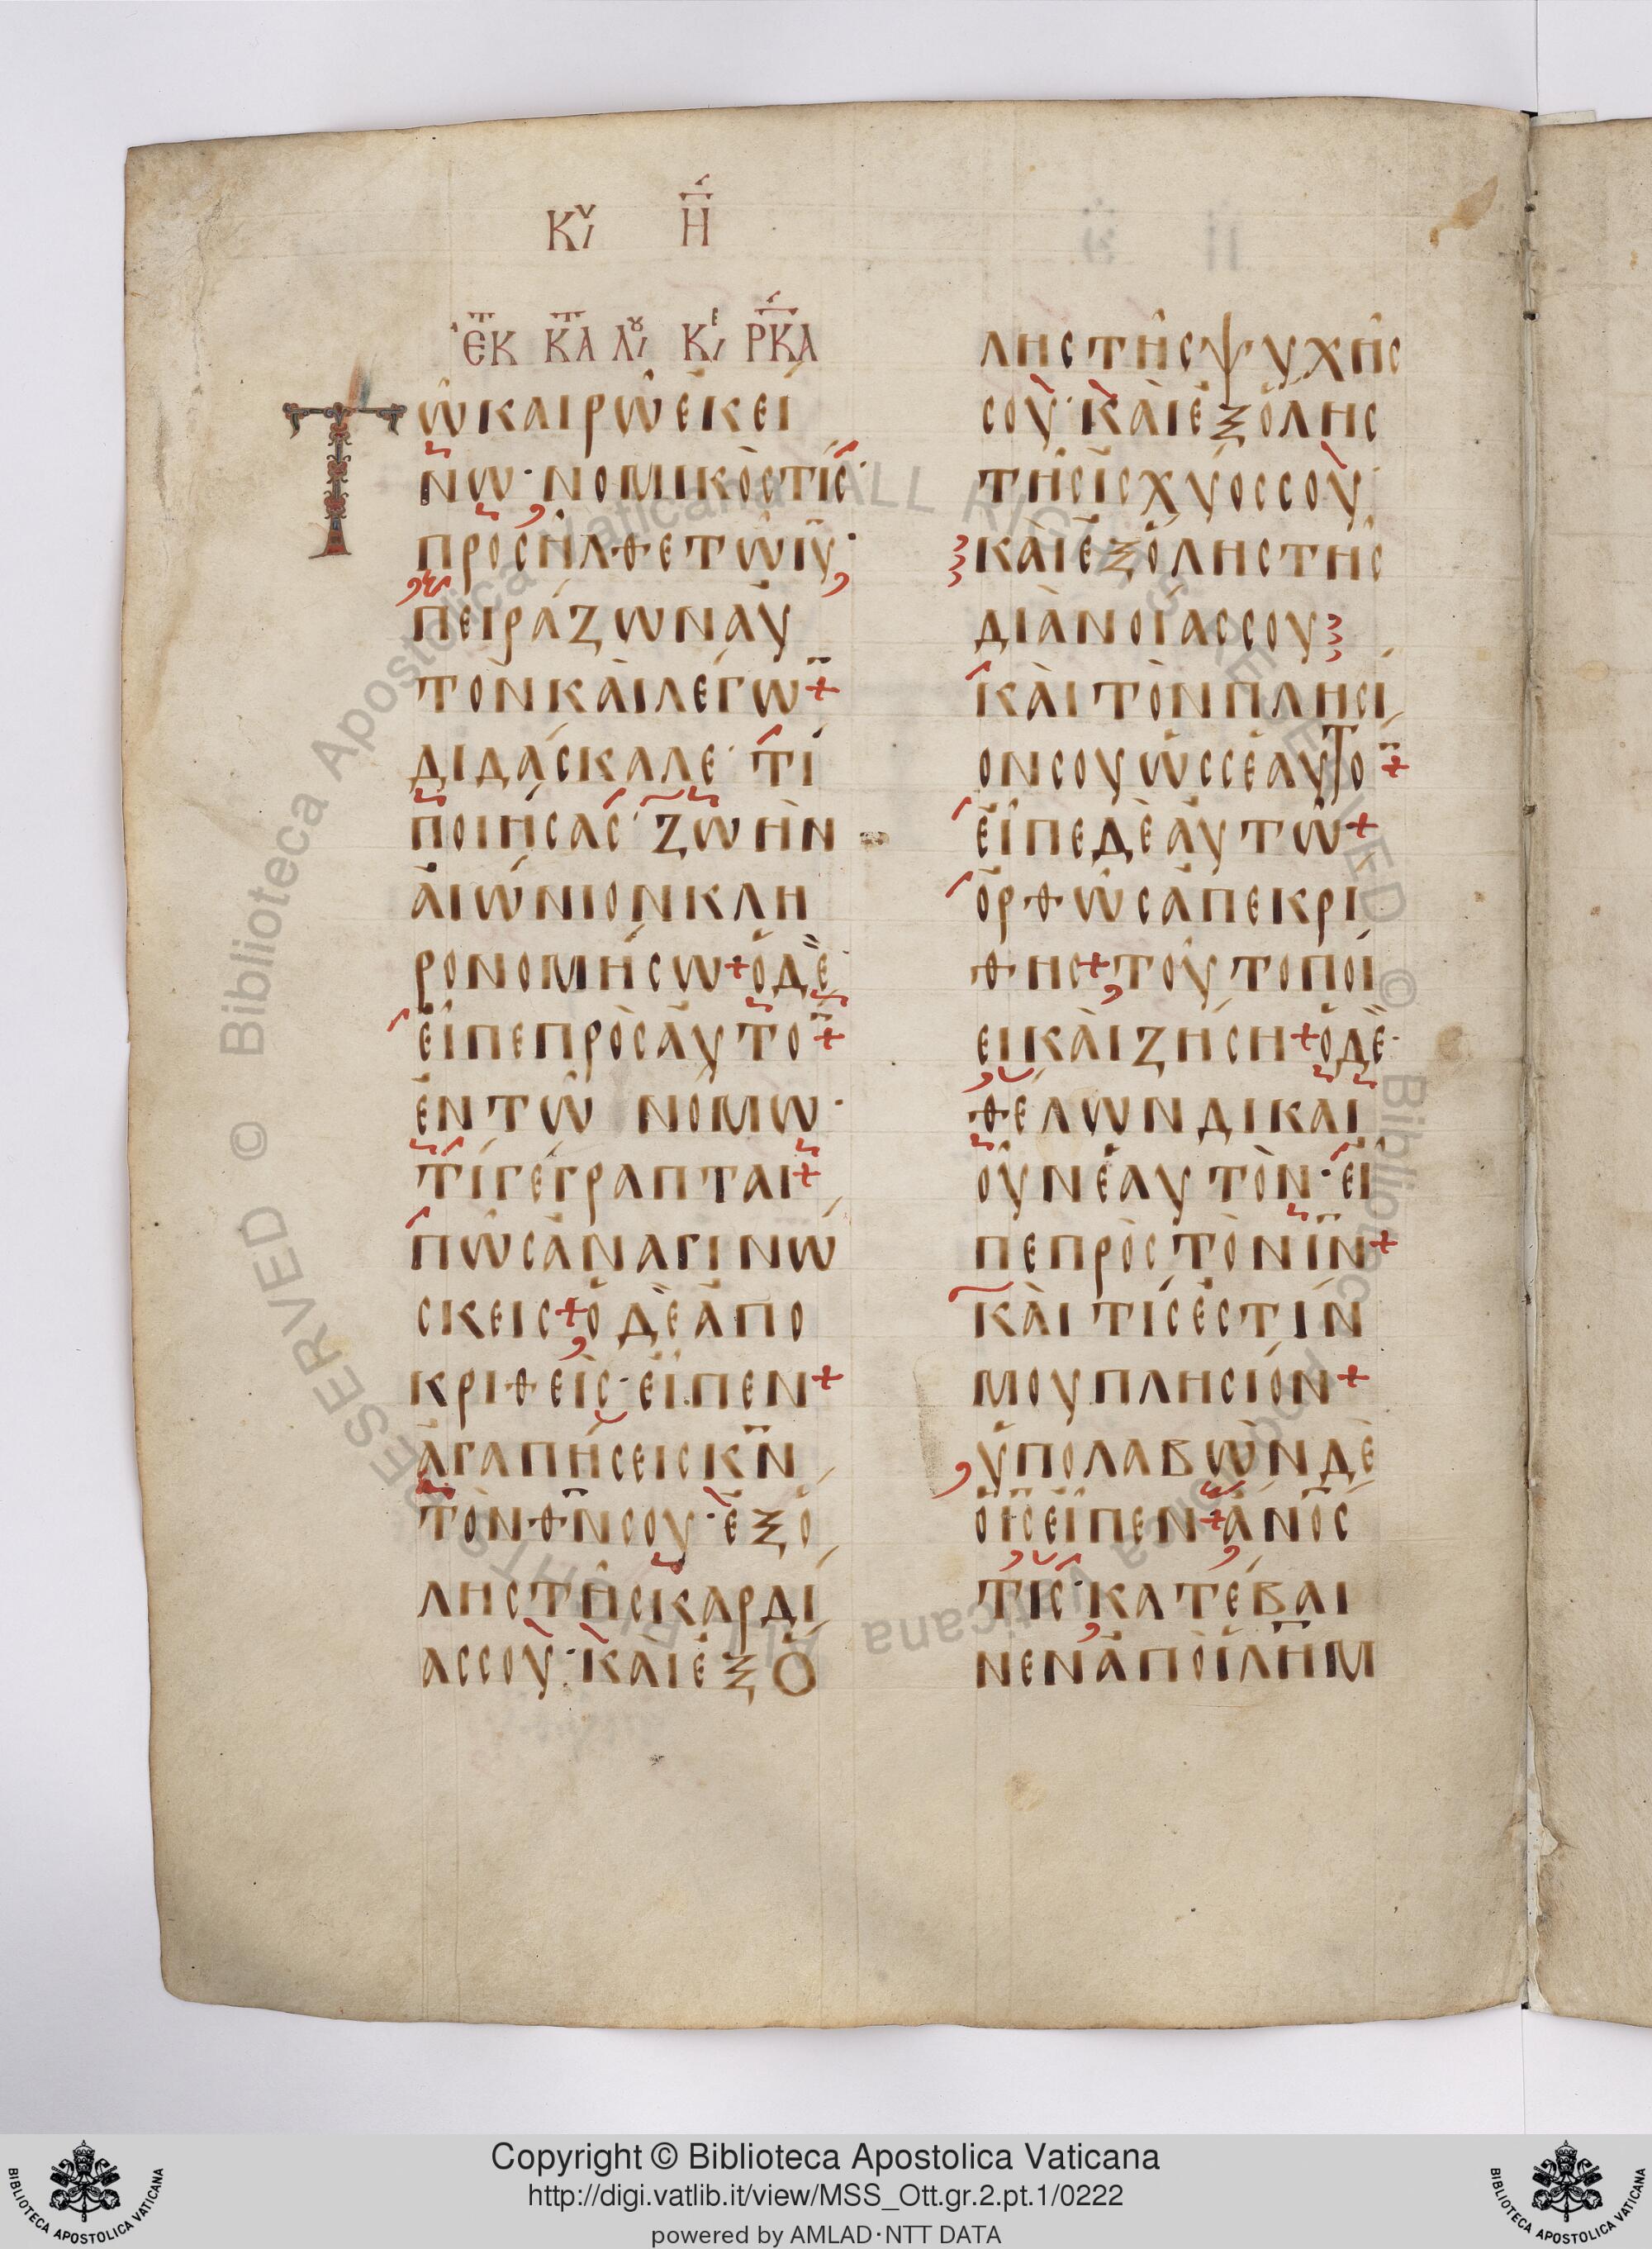 Κυ Η
ἐκ κατὰ Λου κε ρκα
Τῶ καιρῶ ἐκεί
νω· νομικὸς τίς·
προσῆλθε τῶ ιυ·
πειράζων αὐ
τὸν καὶ λέγω̅
διδάσκαλε· τί
ποιήσας· ζωὴν
αἰώνιον κλη
ρονομήσω+ ὁ δὲ
εἶπε πρὸς αὐτο̅+
ἐν τῶ νομω·
τί γέγραπται+
πῶς ἀναγινώ
σκεις+ ὁ δὲ ἀπο
κριθεὶς· εἶπεν+
ἀγαπήσεις κ̅ν̅
τὸν θ̅ν̅ σου· ἐξ ὅ
λης τῆς καρδί
ας σου· καὶ ἐξ ὅ
λης τῆς ψυχῆς
σου· καὶ ἐξ ὅλης
τῆς ἰσχύος σοὺ·
καὶ ἐξ ὅλης τῆς
διὰνοίας σου
καὶ τὸν πλησί
ον σου ὡς σεαυτο̅+
εἶπε δὲ αὐτῶ+
ὀρθῶς ἀπεκρί
θης+ τοῦτο ποί
ει καὶ ζήση+ ὁ δὲ·
θέλων δικαι
οῦν ἑαυτὸν· εἶ
πε πρὸς τὸν ι̅ν̅+
καὶ τίς ἐστὶν
μου πλησίον+
ὑπολαβὼν δὲ
ὁ ι̅ς̅ εἶπεν+ ἀ̅ν̅ο̅ς̅
τις· κατέβαι
νεν ἀπὸ ι̅λ̅η̅μ̅
Copyright © Biblioteca Apostolica Vaticana
http://digi.vatlib.it/view/MSS_Ott.gr.2.pt.1/0222
powered by AMLAD·NTT DATA
BIBLIOTECA APOSTOLICA VATICANA
BIBLIOTECA APOSTOLICA VATICANA